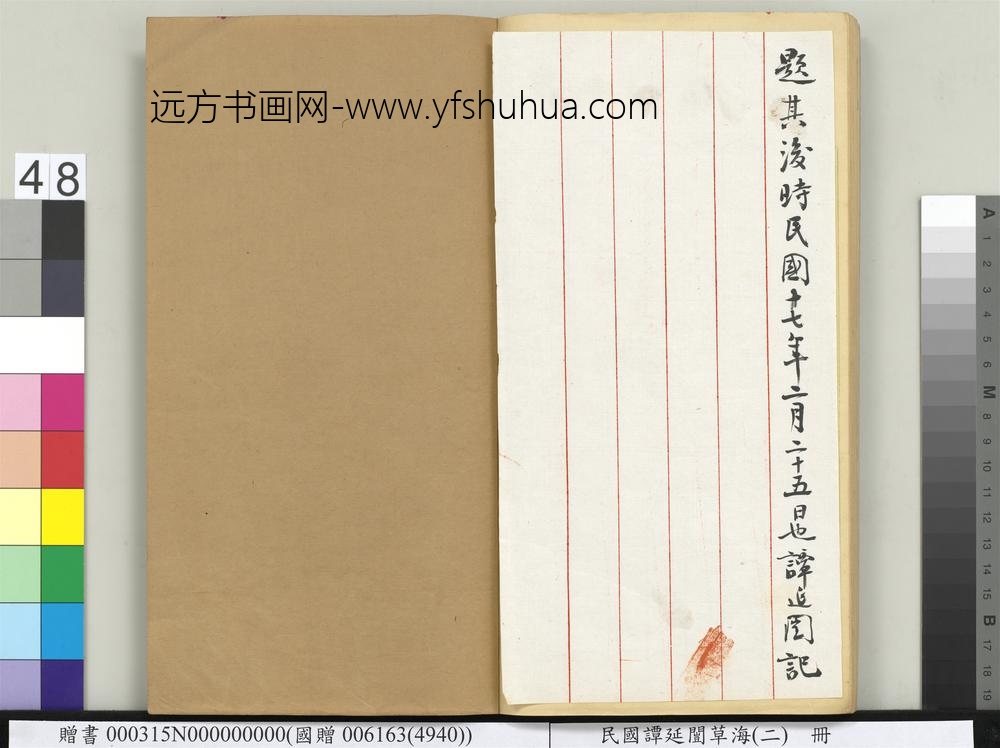 远方书画网-www.yfshuhua.com
題其後時民國十七年二月二十五日也譚延闓記
48
A
1
2
3
4
5
6
M
8
9
10
11
12
13
14
15
B
17
18
19
贈書 000315N000000000(國贈 006163(4940))
民國譚延闓草海(二) 冊